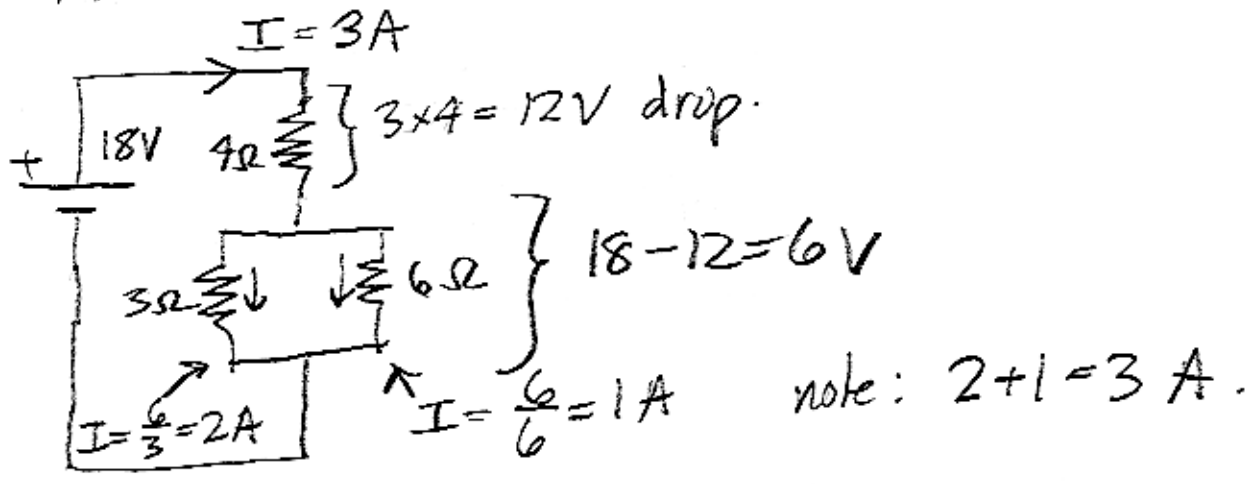 I = 3A
3×4 = 12V drop.
+ 18V 4Ω
18-12=6V
3Ω ↓ ↓ 6Ω
I=6/3=2A
I=6/6=1A
note: 2+1=3 A.